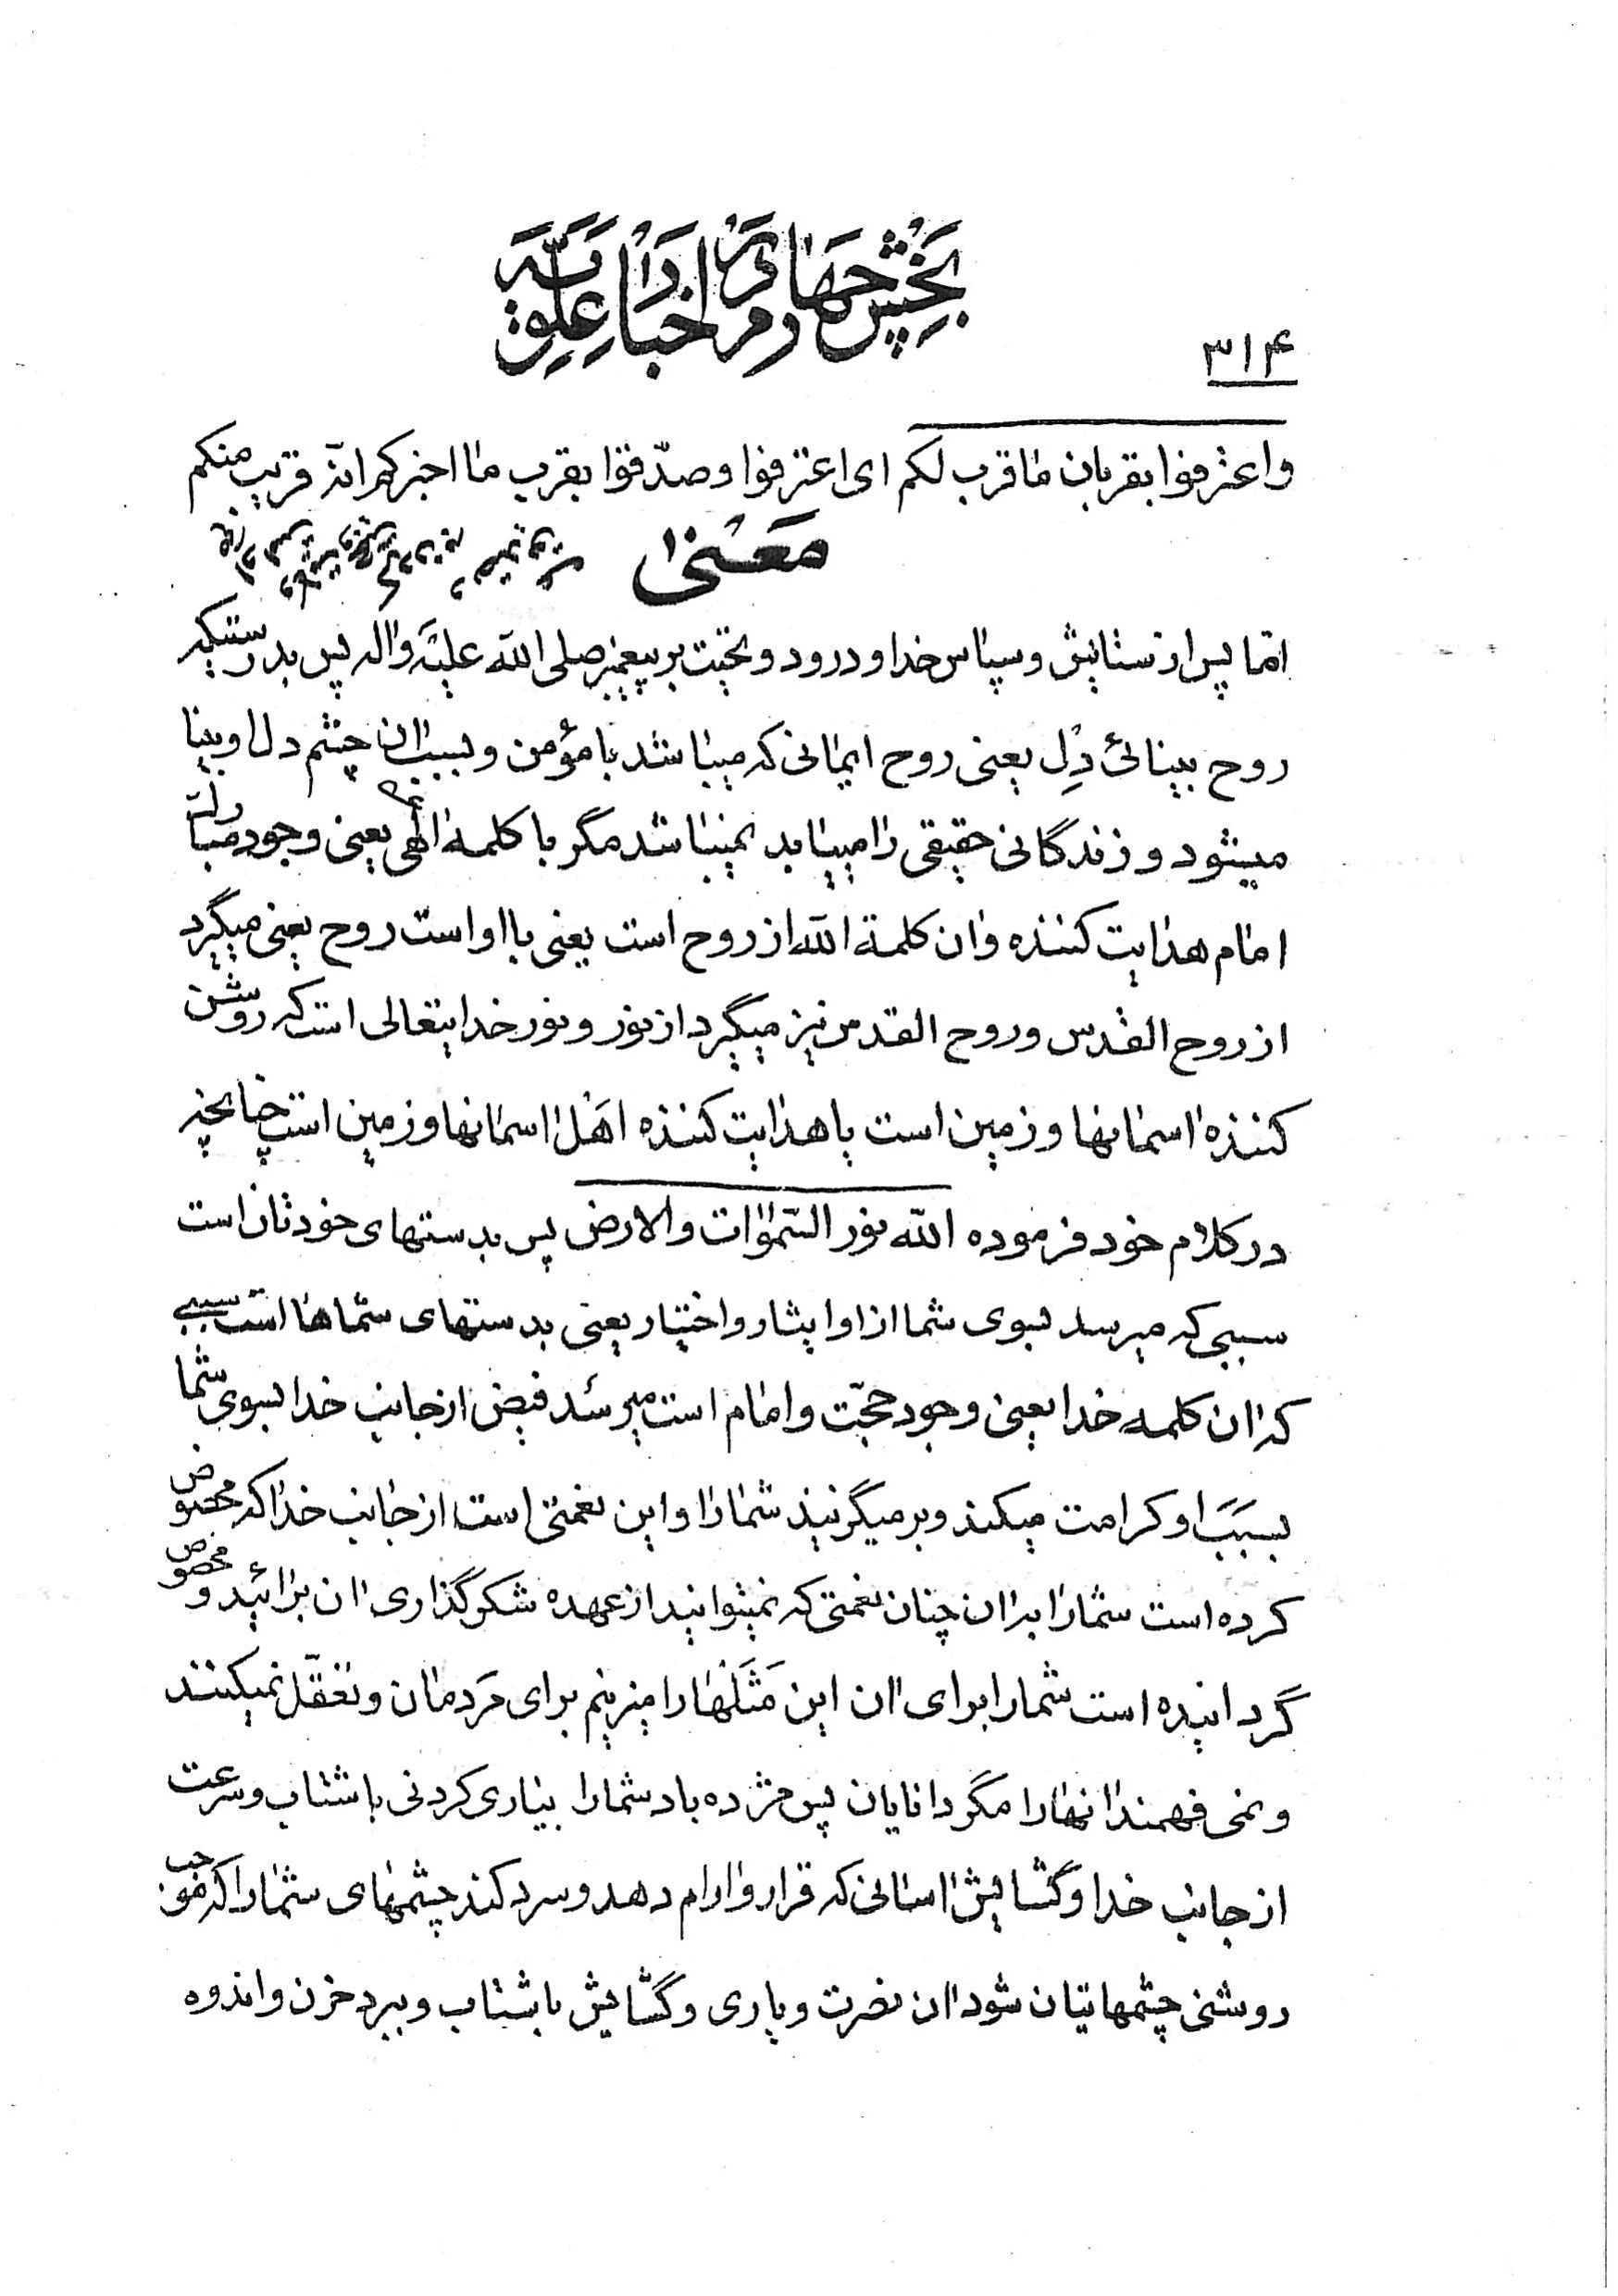 بخش چهارم در اخبار علویه
۳۱۴
واعترفوا بقربان ما قرب لكم ای اعترفوا وصدّقوا بقرب ما اخبركم انه قریب منكم
معنی
امّا پس از ستایش و سپاس خدا و درود و تحیت بر پیغمبر صلی الله علیه واله پس بدرستیکه
روح بینائی دل یعنی روح ایمانی که میباشد با مؤمن و بسبب ان چشم دل او بینا
میشود و زندگانی حقیقی را مییابد نمیباشد مگر با کلمه الهی یعنی وجود مبارک
امام هدایت کننده وان کلمة الله از روح است یعنی با او است روح یعنی میگیرد
از روح القدس و روح القدس نیز میگیرد از نور و نور خدایتعالی است که روشن
کننده اسمانها و زمین است یا هدایت کننده اهل اسمانها و زمین است چنانچه
در کلام خود فرموده الله نور السّموات والارض پس بدستهای خودتان است
سببی که میرسد بسوی شما از او ایثار و اختیار یعنی بدستهای شماها است سببی
که ان کلمه خدا یعنی وجود حجّت و امام است میرسد فیض از جانب خدا بسوی شما
بسبب او کرامت میکند و برمیگزیند شما را و این نعمتی است از جانب خدا که مخصوص
کرده است شما را بران چنان نعمتی که نمیتوانید از عهده شکرگذاری ان برائید و مخصوص
گردانیده است شما را برای ان این مَثَلها را میزنیم برای مردمان و تعقّل نمیکنند
و نمی فهمند انها را مگر دانایان پس مژده باد شما را بیاری کردنی با شتاب و سرعت
از جانب خدا و گشایش اسانی که قرار و ارام دهد و سرد کند چشمهای شما را که موجب
روشنی چشمهاتیان شود ان نصرت و یاری و گشایش با شتاب و ببرد حزن و اندوه